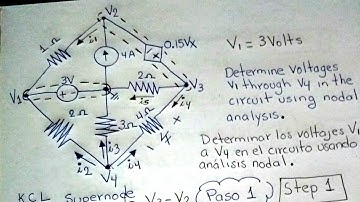 V2
1Ω
i1
4A
0.15Vx
V1 = 3Volts
3V
2Ω
V1
V3
i5
i4
Determine Voltages
V1 through V4 in
the circuit using nodal
analysis.
2Ω
3Ω
4Ω
Vx
i2
i3
i4
V4
Determinar los voltajes V1
a V4 en el circuito usando
análisis nodal.
KCL Supernode
V3-V2
Paso 1
Step 1